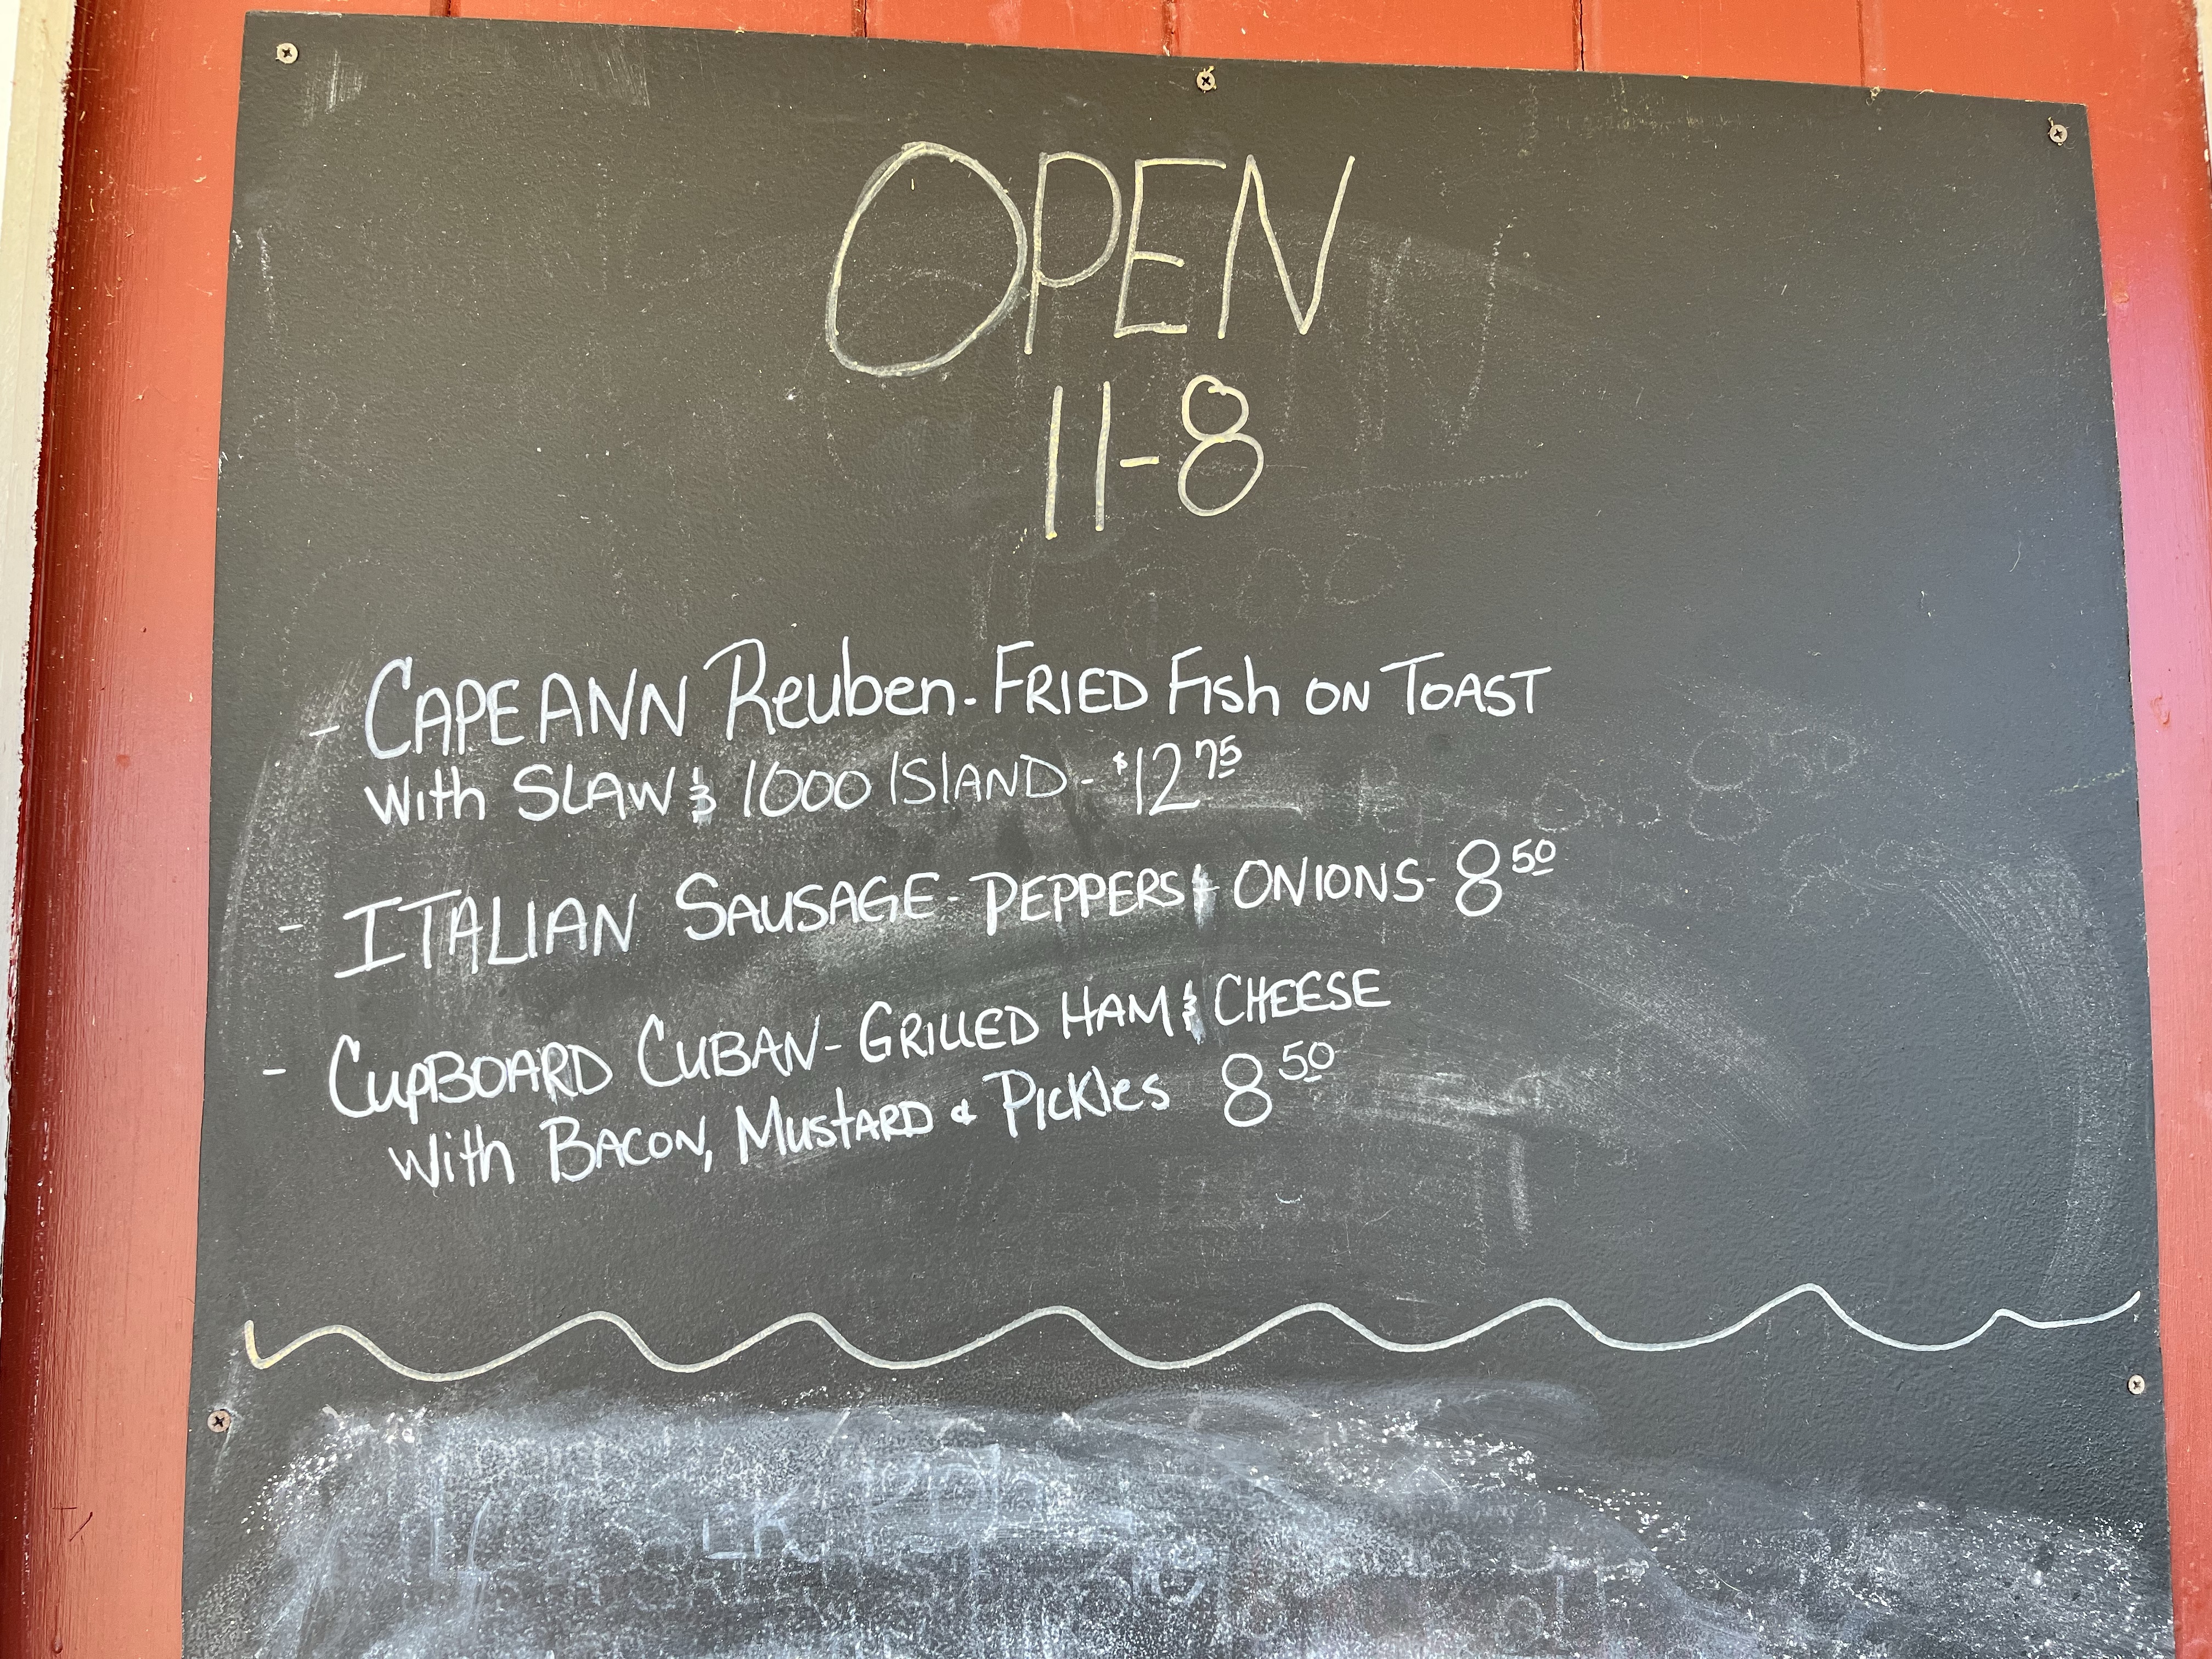 OPEN
11-8
- CAPE ANN Reuben - FRIED FISh ON TOAST
with SLAW & 1000 ISLAND - $12 75
- ITALIAN SAUSAGE - PEPPERS & ONIONS - 8 50
- CUPBOARD CUBAN - GRILLED HAM & CHEESE
with BACON, MUSTARD & PICKles 8 50